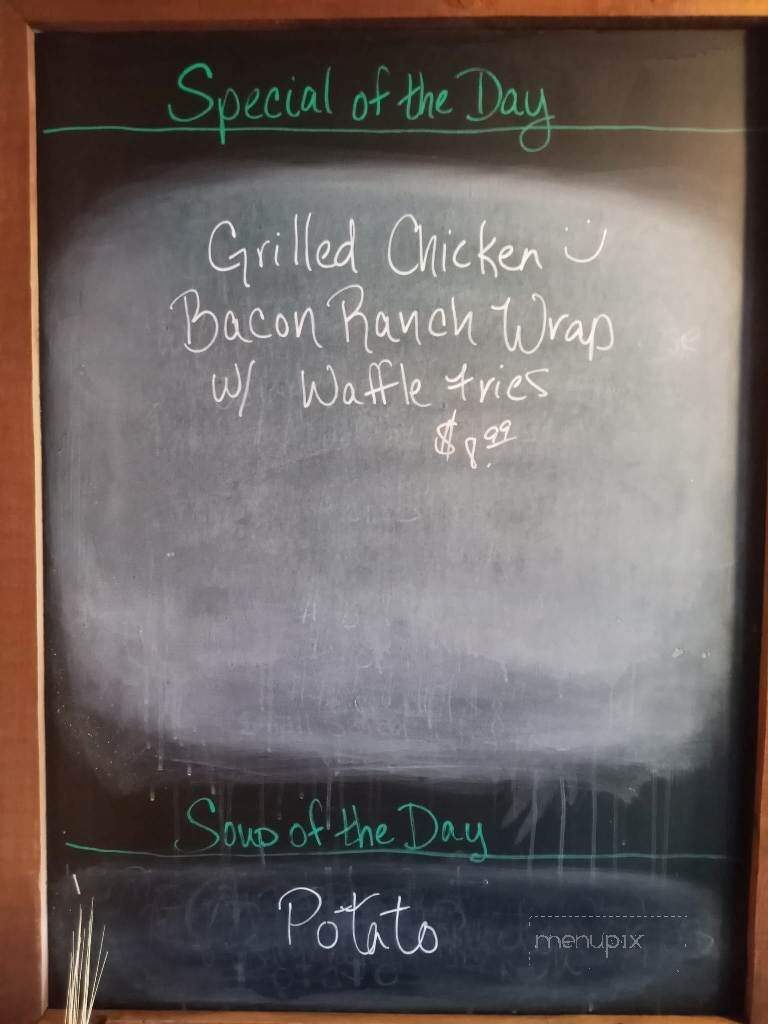 Special of the Day
Grilled Chicken
Bacon Ranch Wrap
w/ Waffle Fries
$8.99
Soup of the Day
Potato
menupix